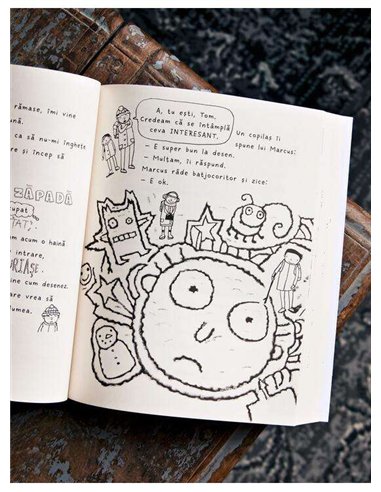 rămase, îmi vine
ca să nu-mi înghețe
re și încep să
ZĂPADĂ
cupat
acum o haină
intrare,
RIAȘE
ine cum desenez.
are vrea să
lumea.
A, tu ești, Tom.
Credeam că se întâmplă
ceva INTERESANT.
Un copilaș îi
spune lui Marcus:
– E super bun la desen.
– Mulțam, îi răspund.
Marcus râde batjocoritor și zice:
– E ok.